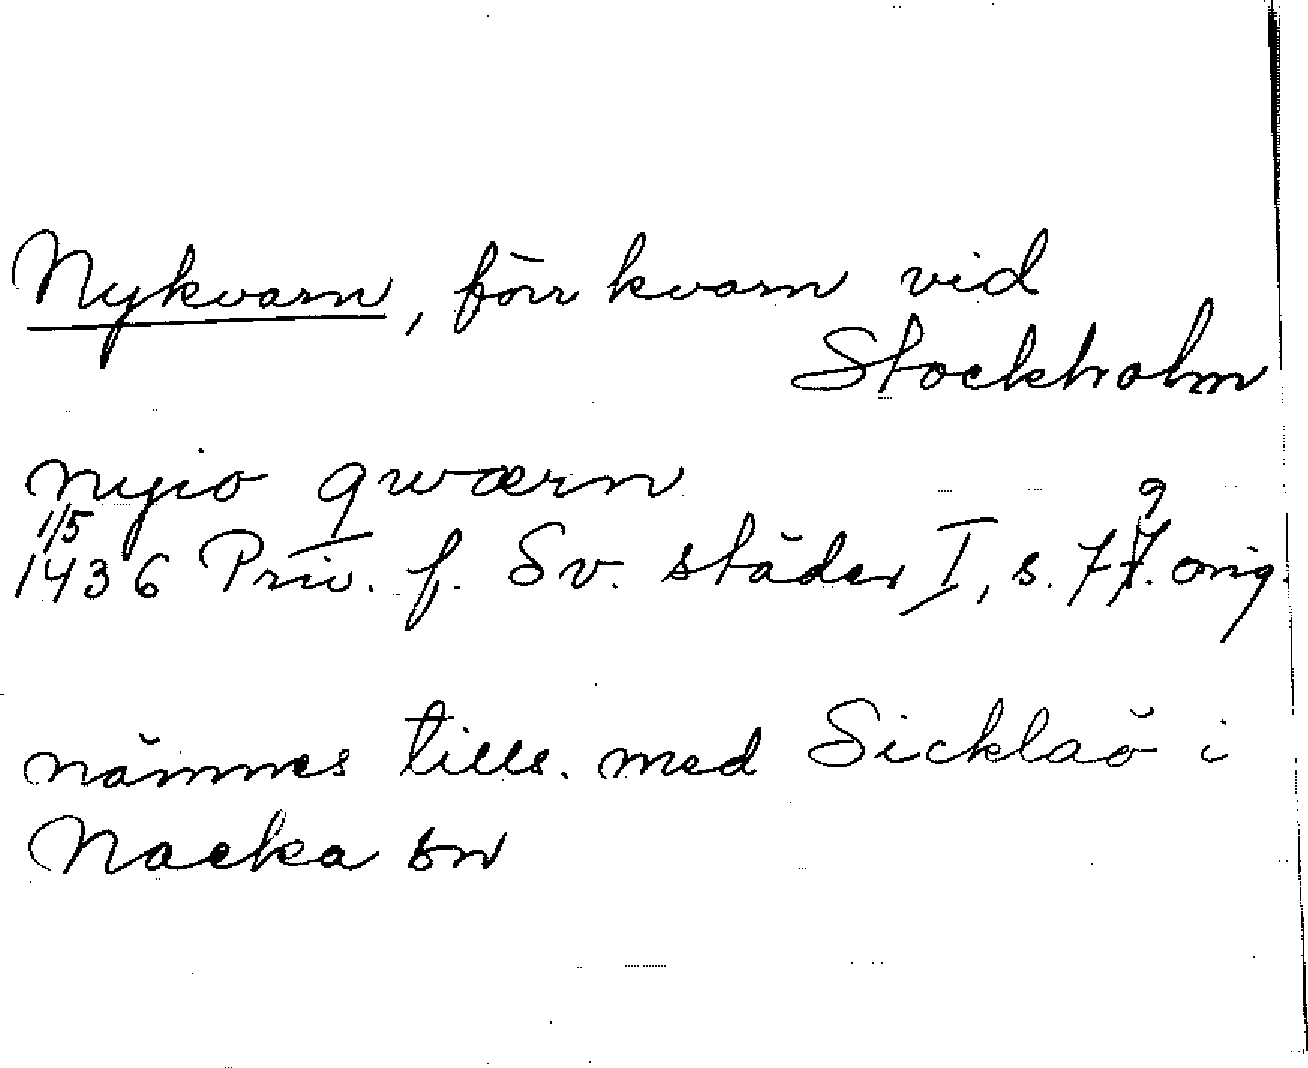 Nykvarn, förr kvarn vid
Stockholm
nyio qwærn
1/5
1436 Priv. f. Sv. städer I, s. 79. orig.
nämnes tills. med Sicklaö i
Nacka sn